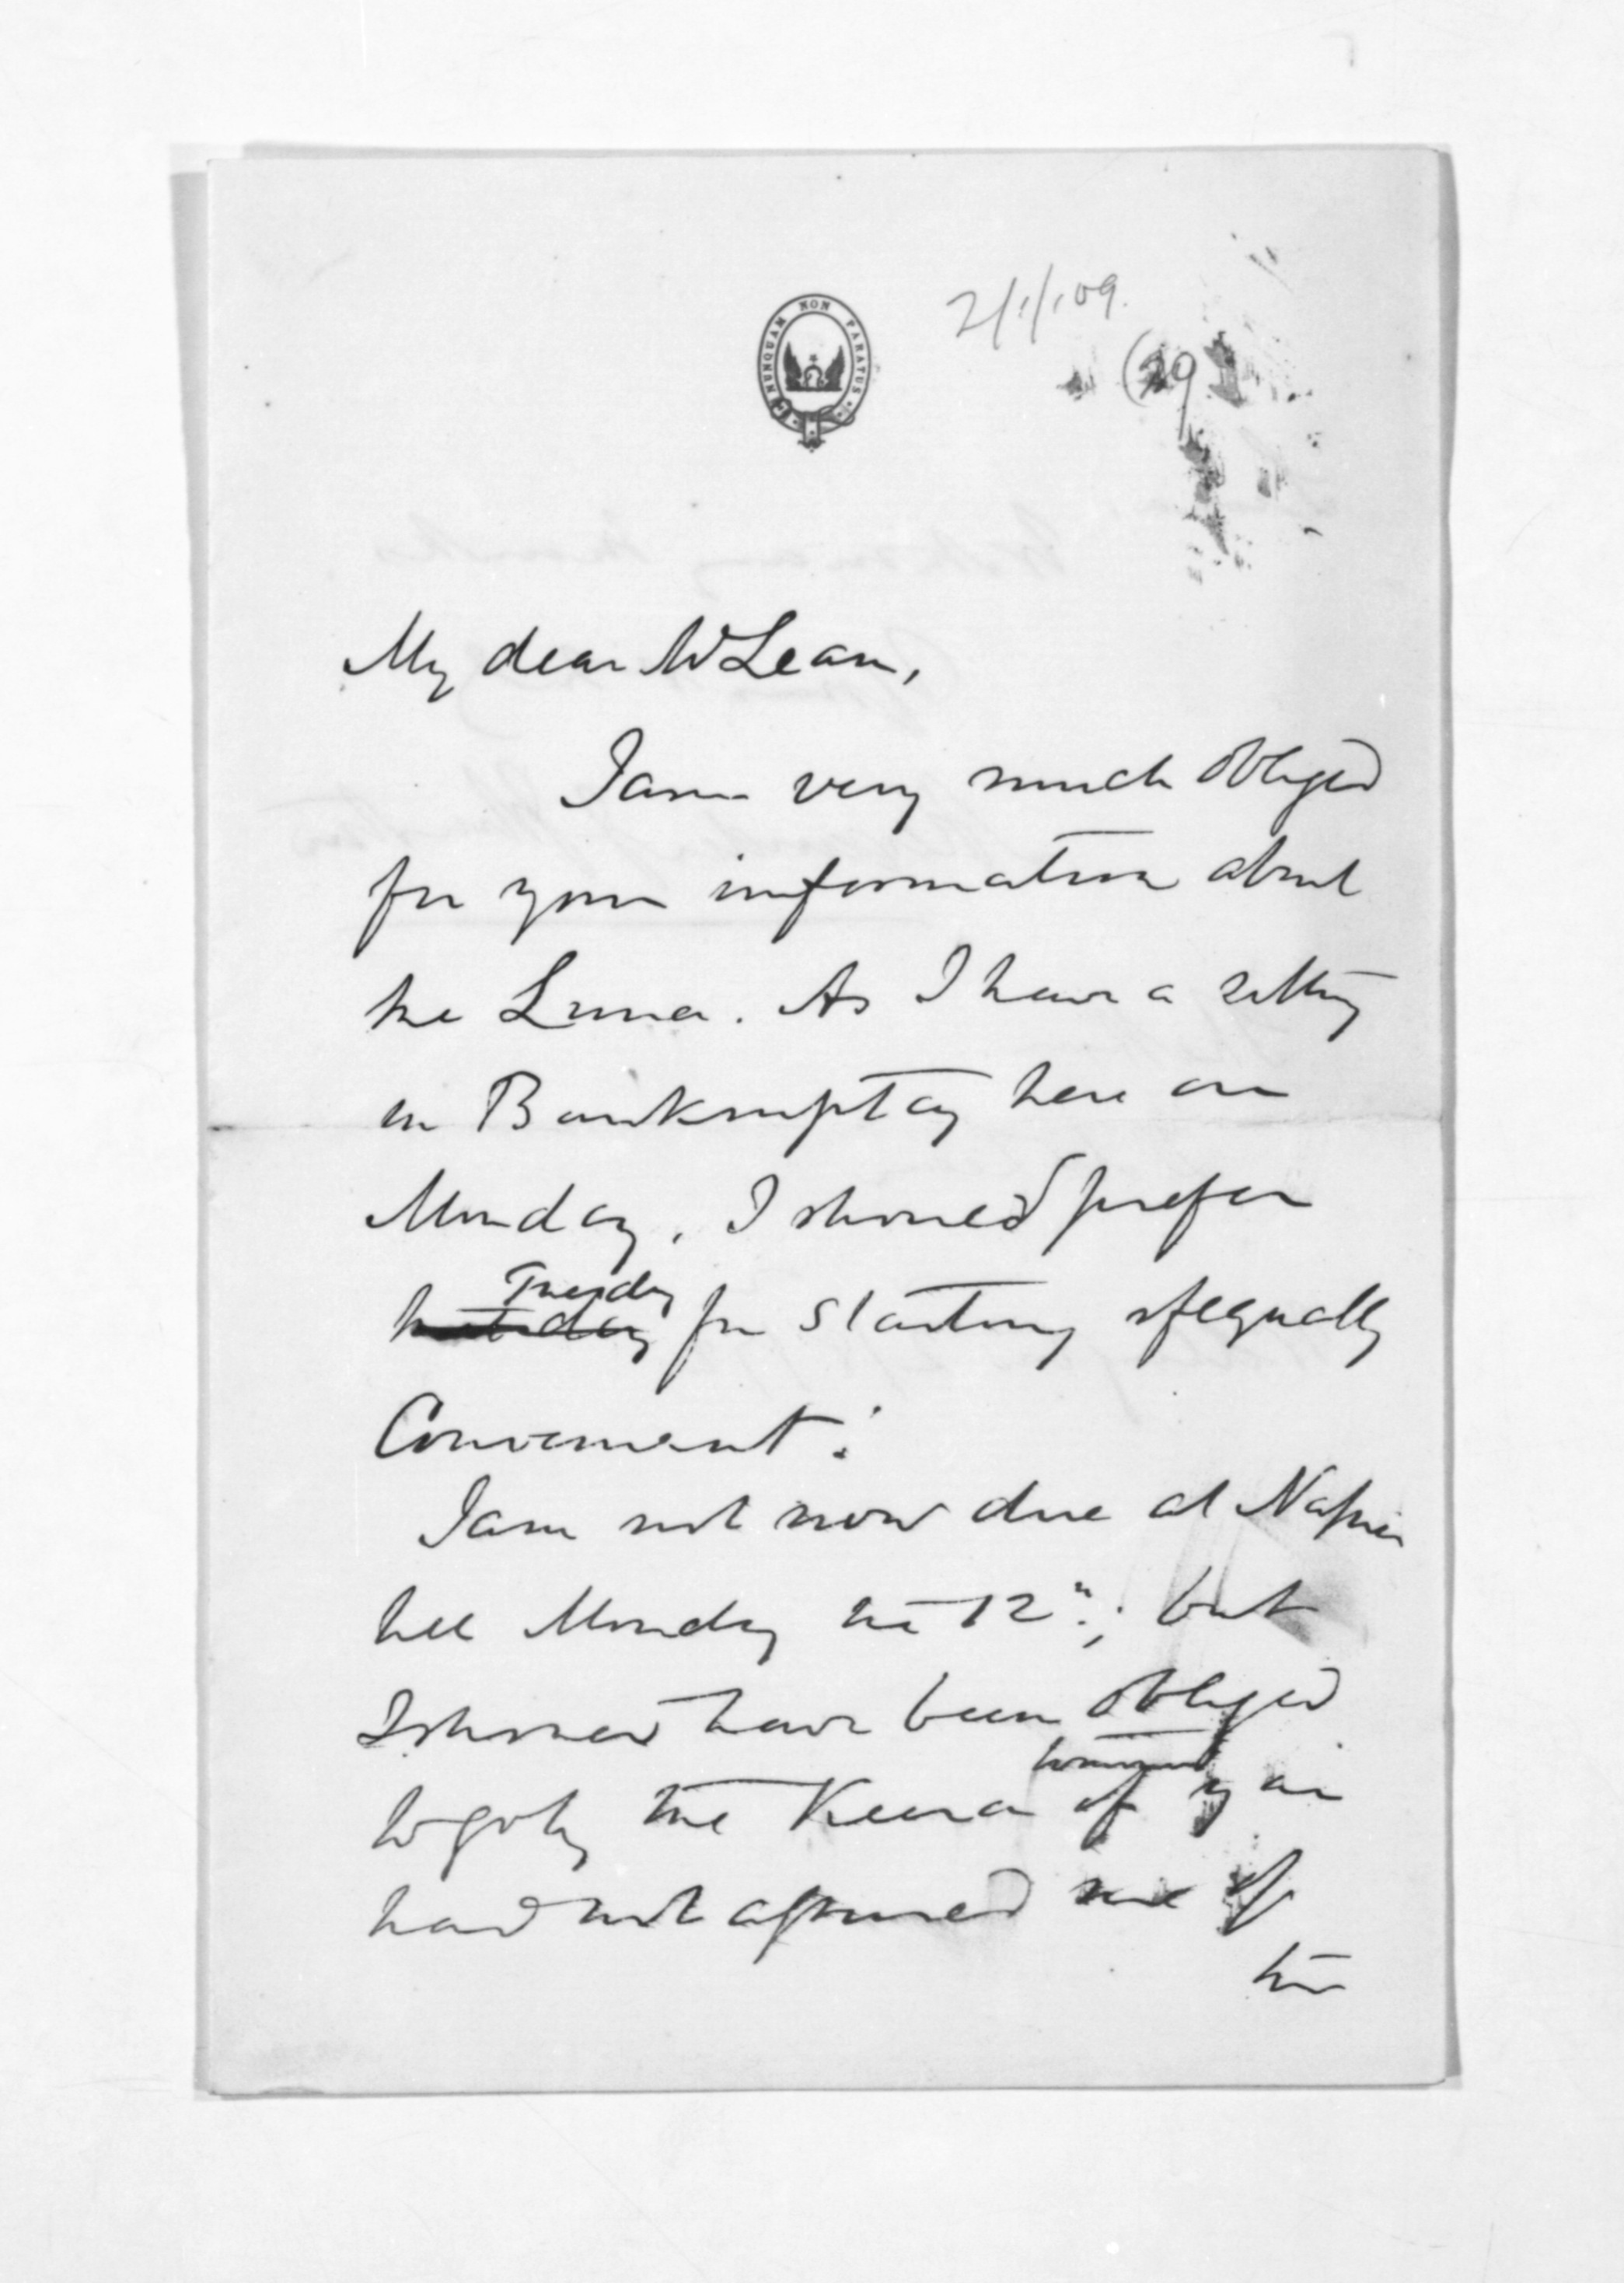 NUNQUAM NON PARATUS
2/1/109.
(29
My dear McLean,
I am very much obliged
for your information about
the Luna. As I have a sitting
in Bankruptcy here on
Monday, I should prefer
Tuesday
for starting if equally
Convenient:
I am not now due at Napier
till Monday the 12th; but
I should have been obliged
tomorrow
to go by the Keera if you
had not assured me of
the